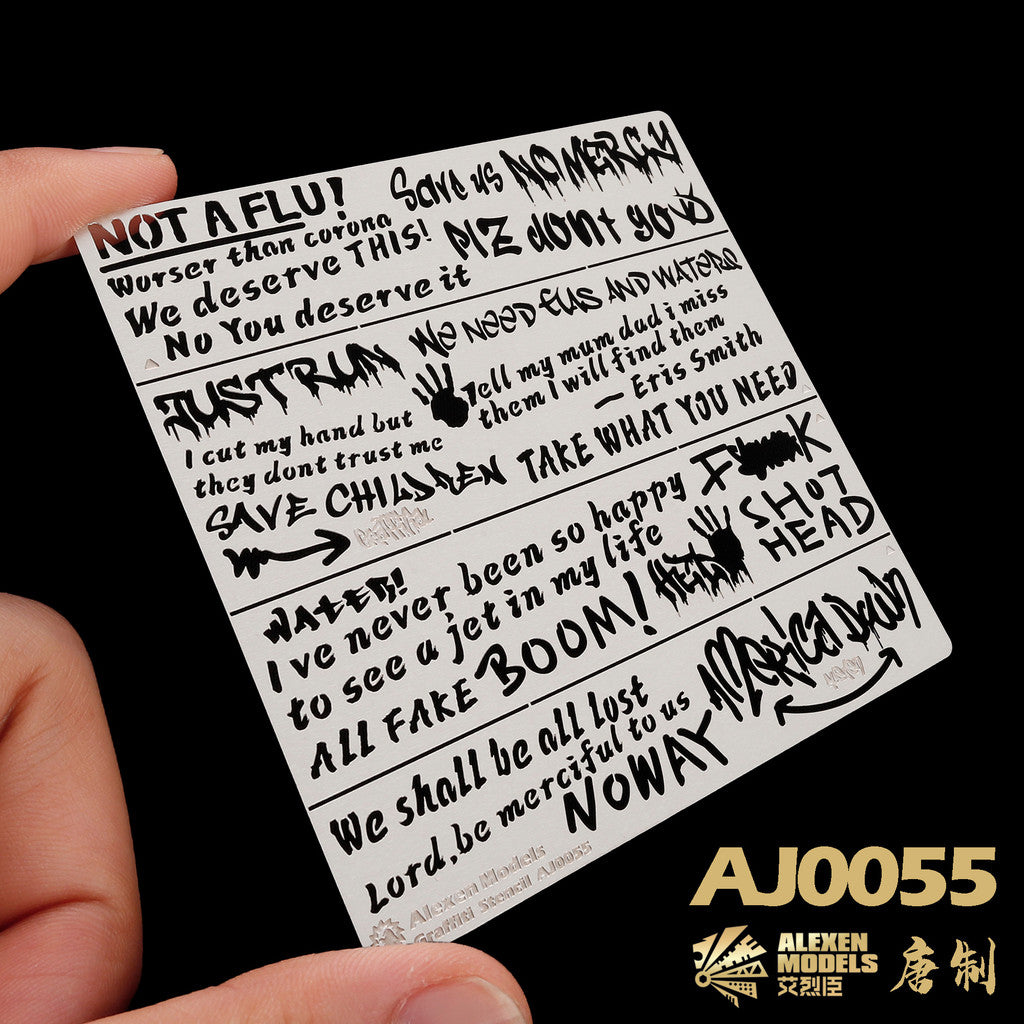 NOT A FLU!
Save us
NO MERCY
Worser than corona
We deserve THIS!
PLZ dont go
No You deserve it
JUST RUN
WE NEED FUS AND WATERS
Tell my mum dad i miss
them I will find them
— Eris Smith
I cut my hand but
they dont trust me
SAVE CHILDREN
TAKE WHAT YOU NEED
WATER!
I ve never been so happy
to see a jet in my life
F K
SHOT
HEAD
HELP
ALL FAKE
BOOM!
We shall be all lost
Lord, be merciful to us
NO WAY
AMERICA DOWN
Alexen Models
Graffiti Stencil AJ0055
AJ0055
ALEXEN
MODELS
艾烈臣
唐制